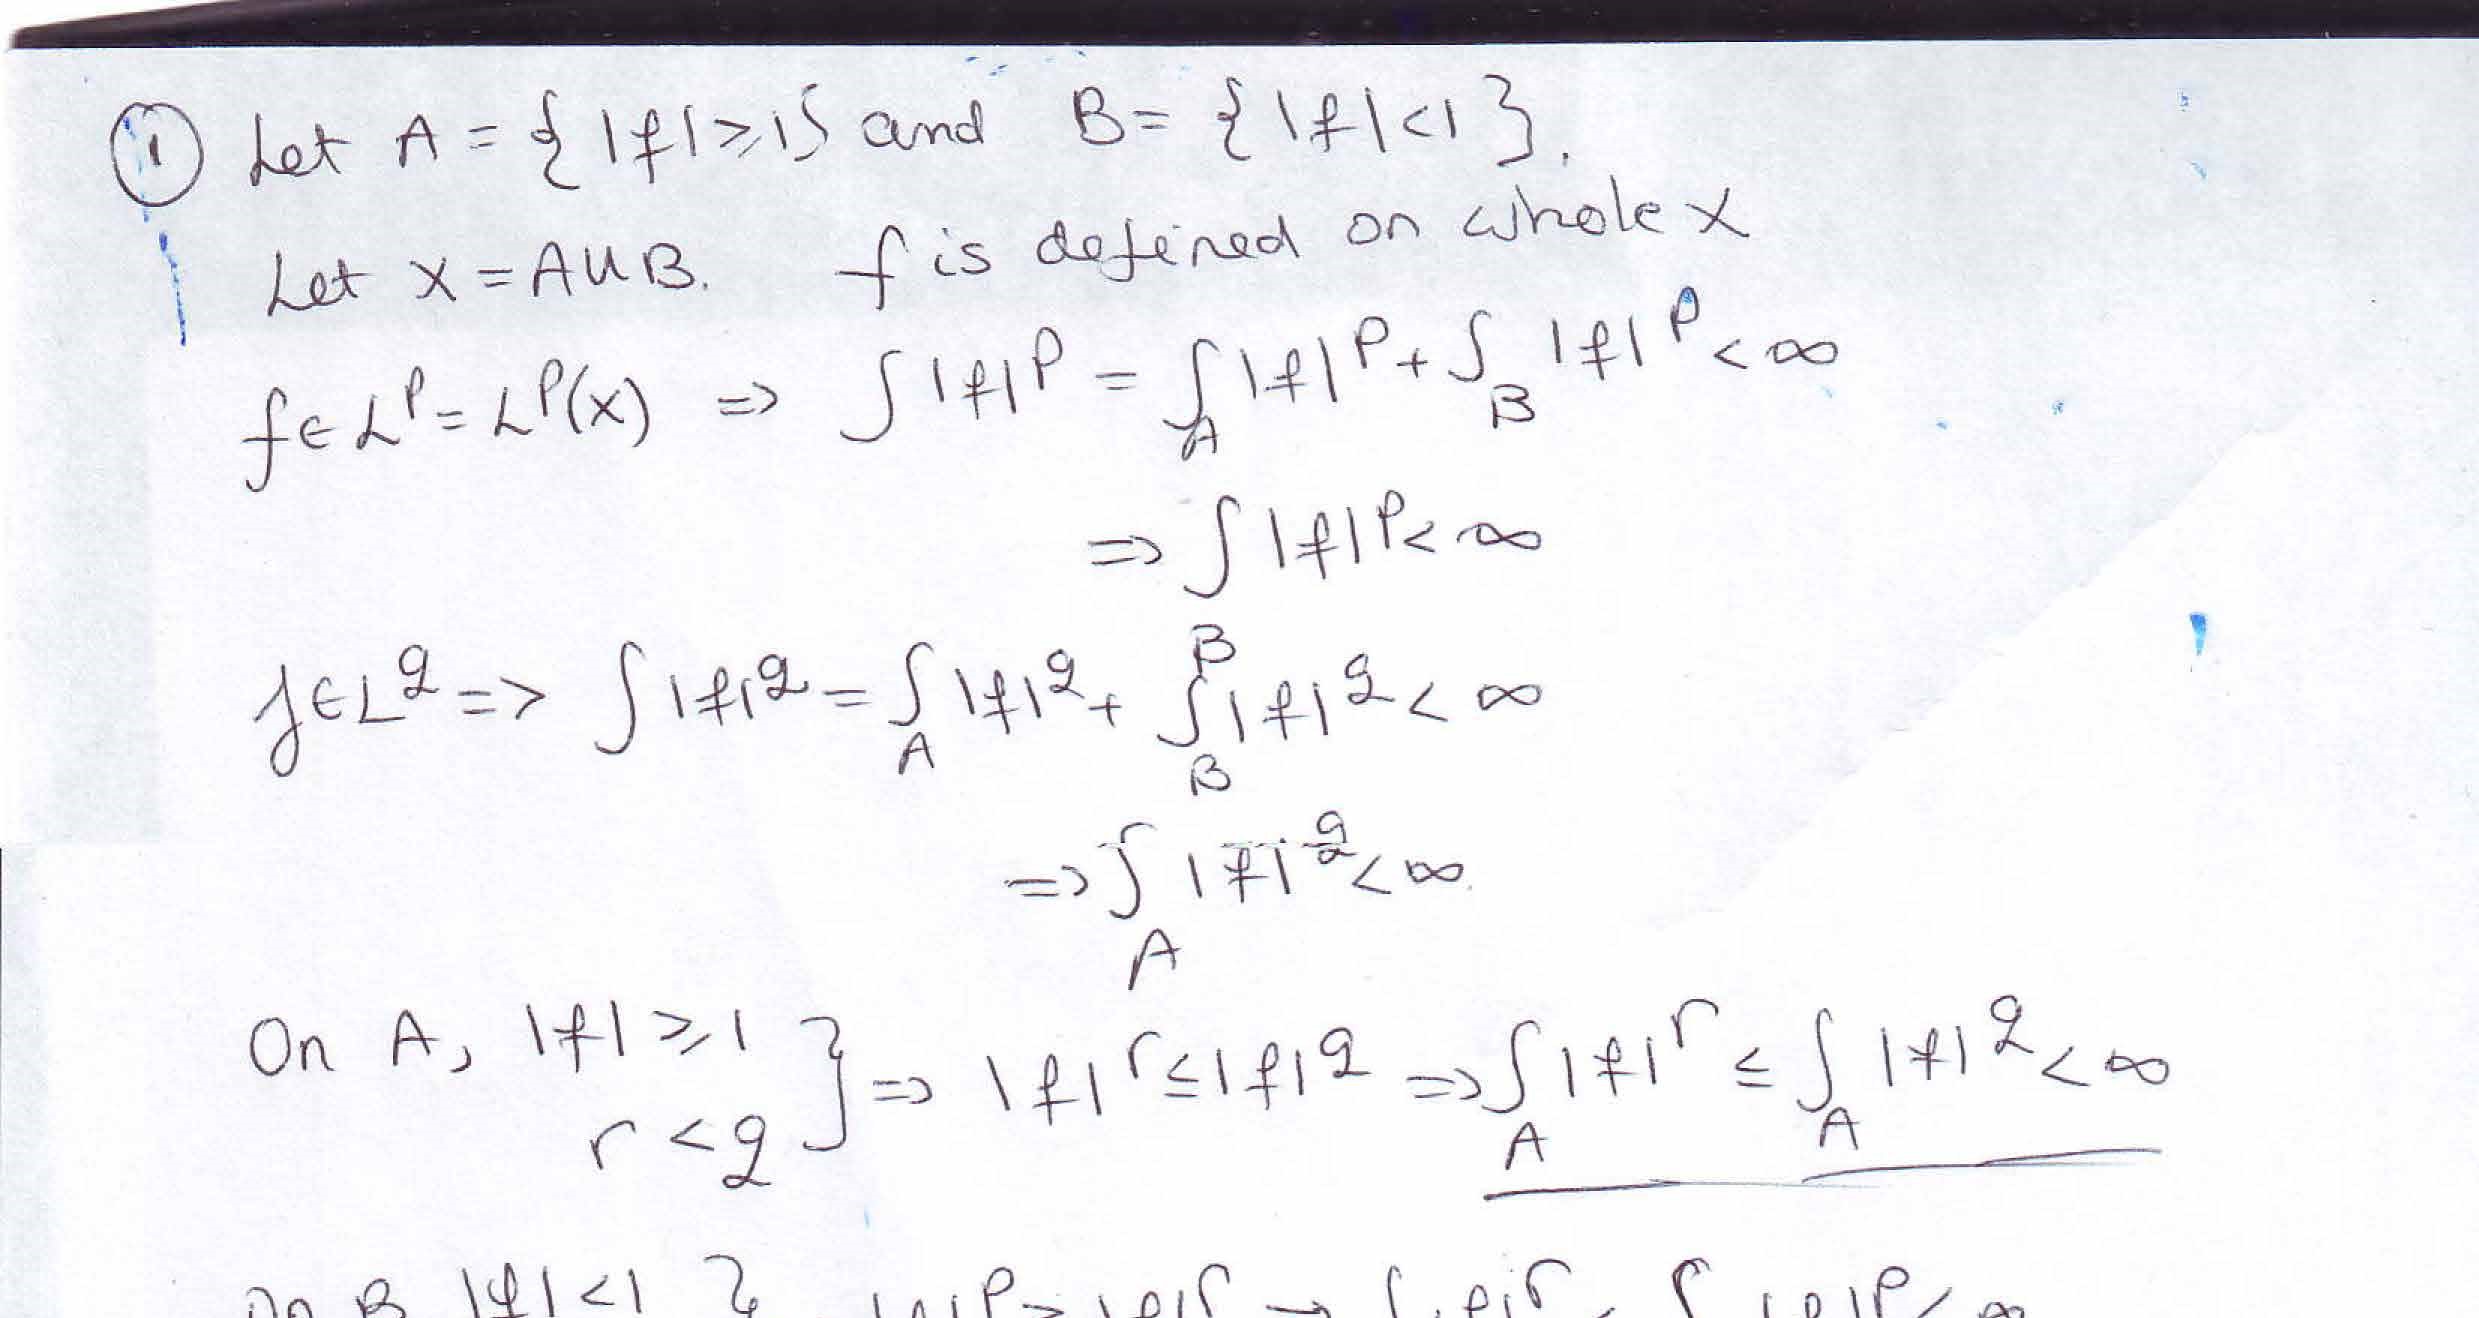 ① Let A = {|f| ≥ 1} and B = {|f| < 1}.
Let X = A ∪ B. f is defined on whole X
f ∈ L^p = L^p(X) => ∫|f|^p = ∫_A |f|^p + ∫_B |f|^p < ∞
=> ∫_B |f|^p < ∞
f ∈ L^q => ∫|f|^q = ∫_A |f|^q + ∫_B |f|^q < ∞
=> ∫_A |f|^q < ∞.
On A, |f| ≥ 1
r < q } => |f|^r ≤ |f|^q => ∫_A |f|^r ≤ ∫_A |f|^q < ∞
On B |f| < 1 }